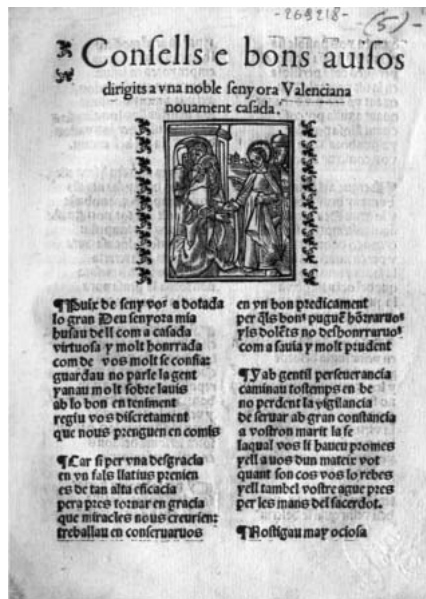 -268218-
(5)
Consells e bons auisos
dirigits a vna noble seny ora Valenciana
nouament casada.
¶Puix de seny vos a dotada
lo gran Deu senyora mia
husau dell com a casada
virtuosa y molt honrrada
com de vos molt se confia:
guardau no parle la gent
y anau molt sobre lauis
ab lo bon enteniment
regiu vos discretament
que nous prenguen en comis
¶Car si per vna desgracia
en vn fals llatius prenien
es de tan alta eficacia
pera pres tornar en gracia
que miracles nous creurien:
treballau en conseruaruos
en vn bon predicament
per q̃ls bons puguẽ hõrraruos
y ls dolẽts no deshonrraruos
com a sauia y molt prudent
¶Y ab gentil perseuerancia
caminau tostemps en be
no perdent la vigilancia
de seruar ab gran constancia
a vostron marit la fe
laqual vos li haueu promes
y ell a uos dun mateix vot
quant son cos vos lo rebes
y ell tambel vostre ague pres
per les mans del sacerdot.
¶No stigau may ociosa